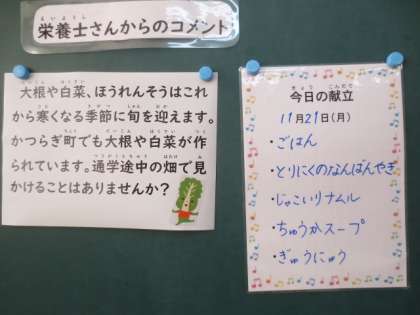 栄養士さんからのコメント
大根や白菜、ほうれんそうはこれ
から寒くなる季節に旬を迎えます。
かつらぎ町でも大根や白菜が作
られています。通学途中の畑で見
かけることはありませんか？
今日の献立
11月21日(月)
・ごはん
・とりにくのなんばんやき
・じゃこいりナムル
・ちゅうかスープ
・ぎゅうにゅう